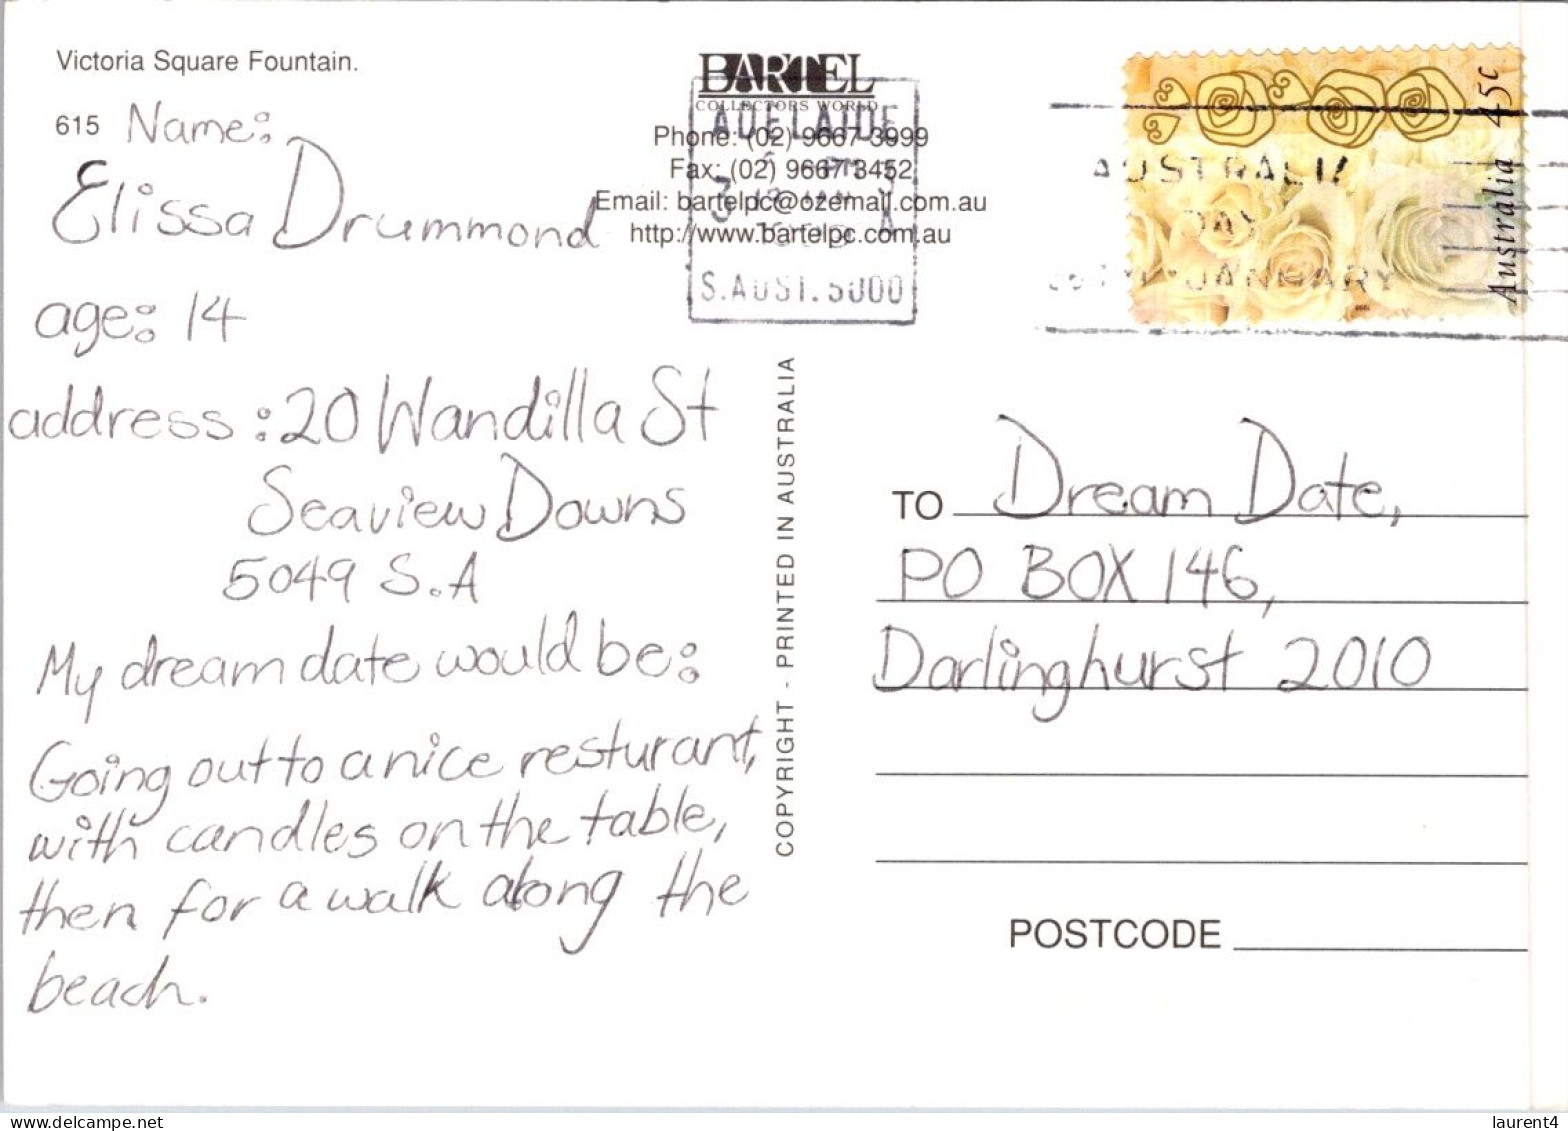 Victoria Square Fountain.
615 Name:
Elissa Drummond
age: 14
address: 20 Wandilla St
Seaview Downs
5049 S.A
My dream date would be:
Going out to a nice resturant,
with candles on the table,
then for a walk along the
beach.
BARTEL
COLLECTORS WORLD
Phone: (02) 9667 3999
Fax: (02) 9667 3452
Email: bartelpc@ozemail.com.au
http://www.bartelpc.com.au
ADELAIDE
S.AUST.5000
COPYRIGHT - PRINTED IN AUSTRALIA
45c
Australia
AUSTRALIA
DAY
JANUARY
TO Dream Date,
PO BOX 146,
Darlinghurst 2010
POSTCODE
laurent4